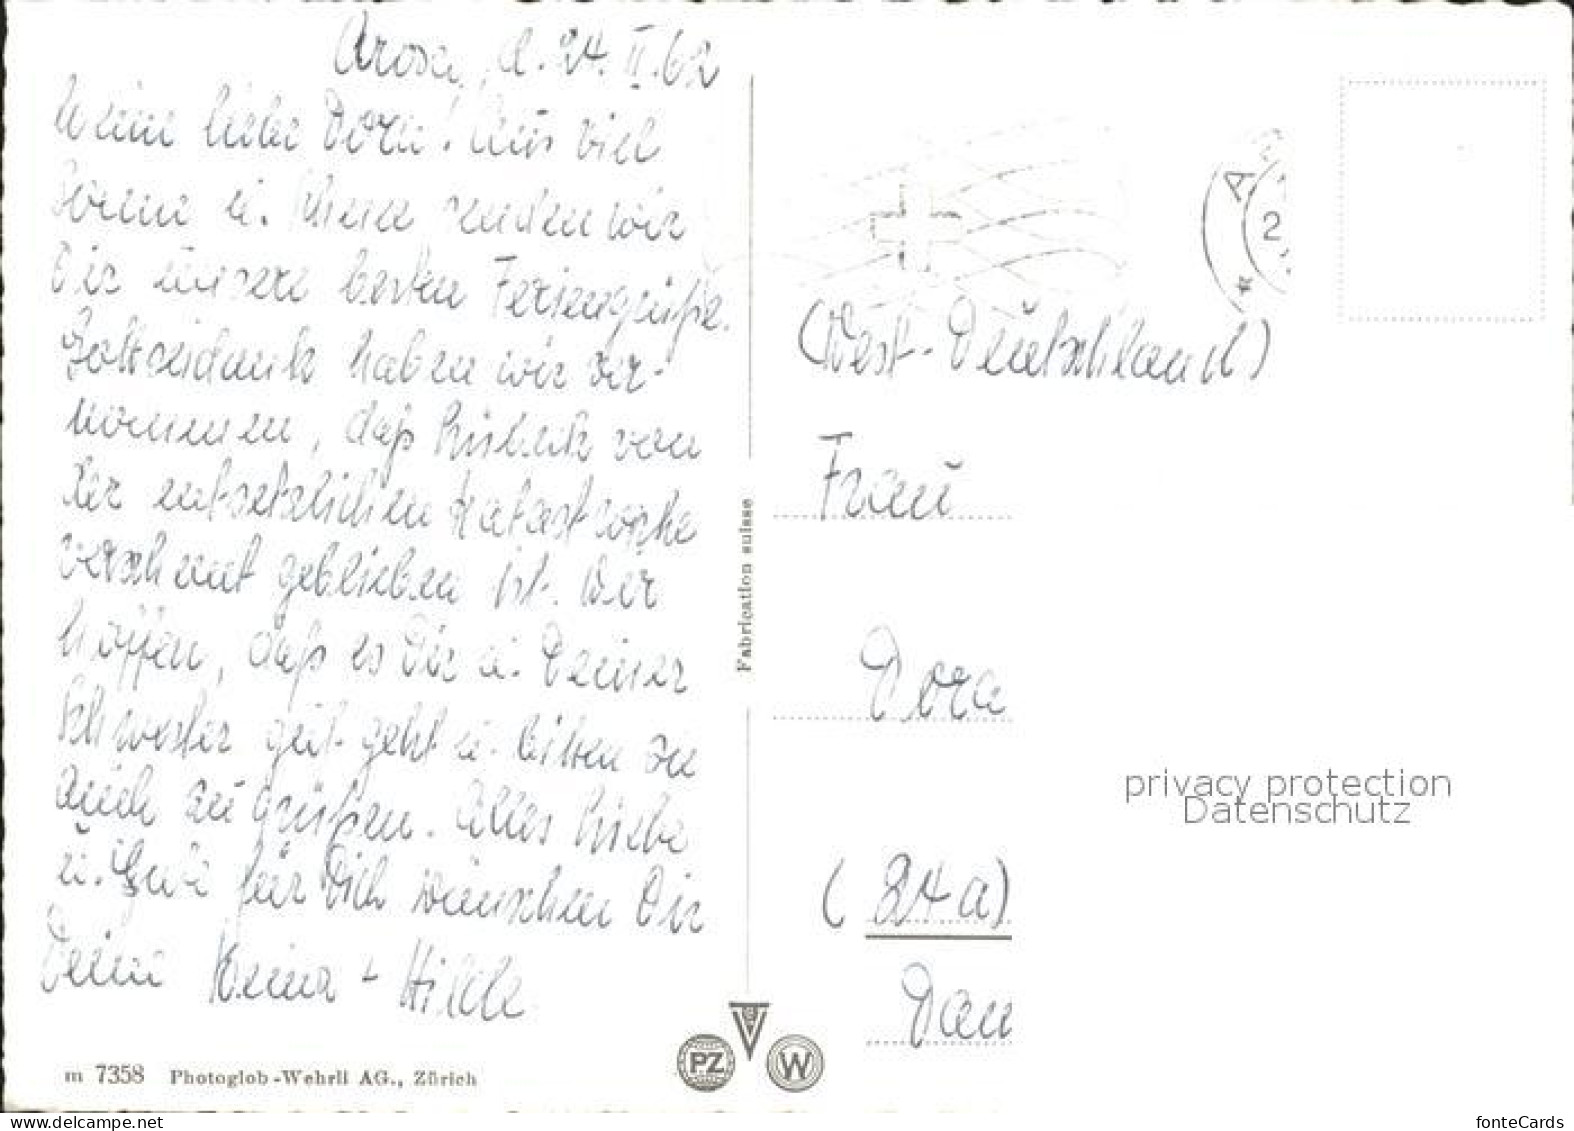 Arosa, d. 24. II. 62
Meine liebe Dora! Aus viel
Sonne u. Schnee senden wir
Dir unsere besten Feriengrüße.
Gottseidank haben wir ver-
nommen, daß Lübeck von
der entsetzlichen Katastrophe
verschont geblieben ist. Wir
hoffen, daß es Dir u. Deiner
Schwester gut geht u. bitten sie
auch zu grüßen. Alles Liebe
u. Gute für Dich wünschen Dir
Deine
m 7358 Photoglob-Wehrli AG., Zürich
Fabrication suisse
PZ
W
A
2
(West-Deutschland)
Frau
Dora
(24a)
privacy protection
Datenschutz
picclick.net
fonteCards